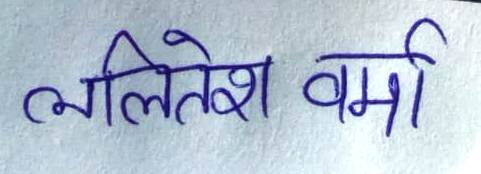 ललितेश वर्मा